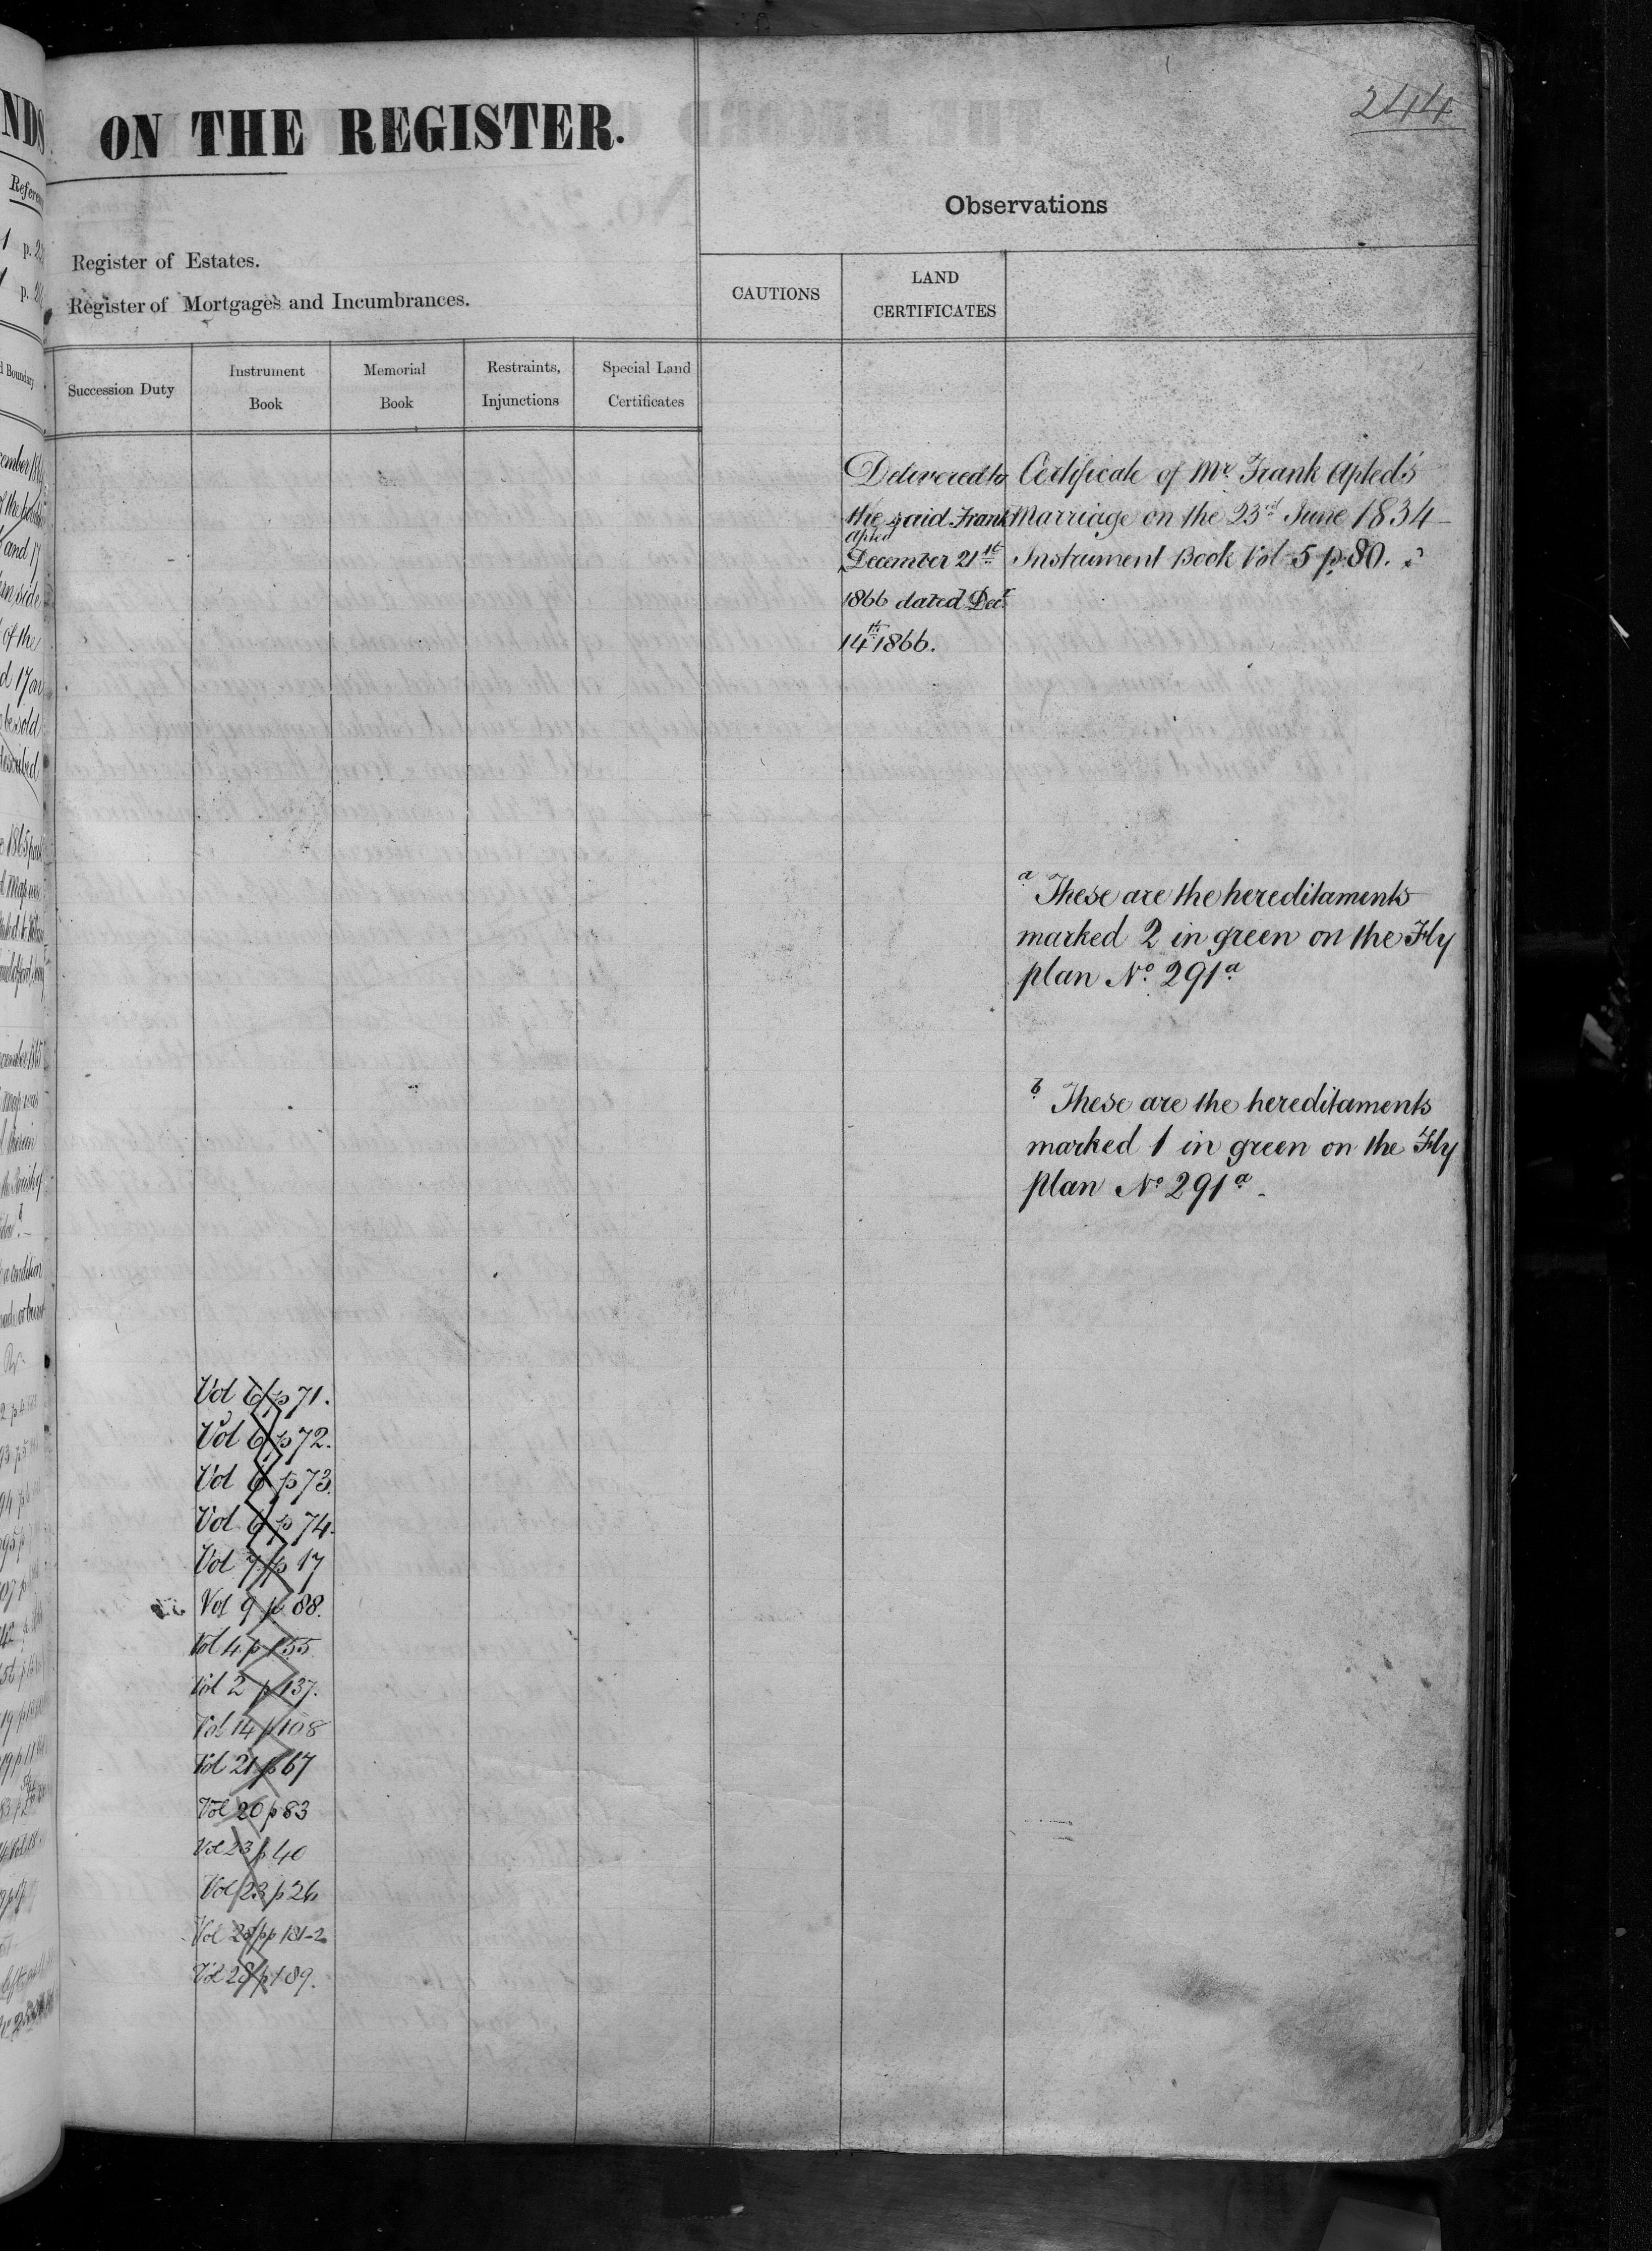 244
ON THE REGISTER.
Observations
Register of Estates.
Register of Mortgages and Incumbrances.
CAUTIONS
LAND
CERTIFICATES
Succession Duty
Instrument
Book
Memorial
Book
Restraints,
Injunctions
Special Land
Certificates
Delivered to
the said Frank
Apted
December 21st
1866 dated Decr
14th 1866.
Certificate of Mr. Frank Apted's
Marriage on the 23rd June 1834
Instrument Book Vol 5 p 80.
a These are the hereditaments
marked 2 in green on the Fly
plan No. 291a
b These are the hereditaments
marked 1 in green on the Fly
plan No 291a
Vol 6 p 71.
Vol 6 p 72.
Vol 6 p 73.
Vol 6 p 74.
Vol 7 p 17
Vol 9 p 88.
Vol 4 p 155
Vol 2 p 137.
Vol 14 p 108
Vol 21 p 67
Vol 20 p 83
Vol 23 p 40
Vol 23 p 26
Vol 28 pp 181-2
Vol 28 p 189.
NDS
p. 2
p. 2
Boundary
and 17
of the
be sold